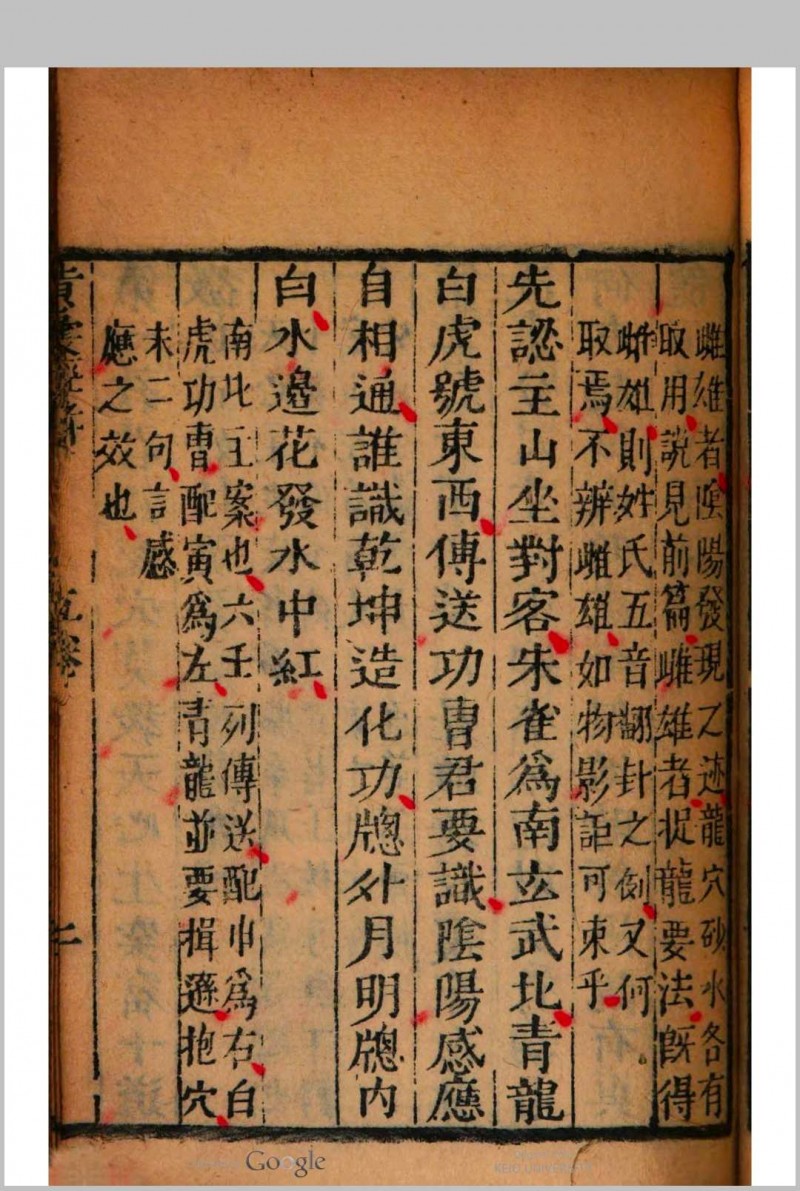 雌雄者陰陽發現之迹龍穴砂水各有
取用說見前篇雌雄者捉龍要法既得
雌雄則姓氏五音翻卦之例又何
取焉不辨雌雄如物影詎可束乎
先認主山坐對客朱雀爲南玄武北青龍
白虎號東西傳送功曹君要識陰陽感應
自相通誰識乾坤造化功牕外月明牕內
白水邊花發水中紅
南北主案也六壬列傳送配巾爲右白
虎功曹配寅爲左青龍並要揖遜抱穴
末二句言感
應之效也
五卷
二
Google
KEIO UNIVERSITY